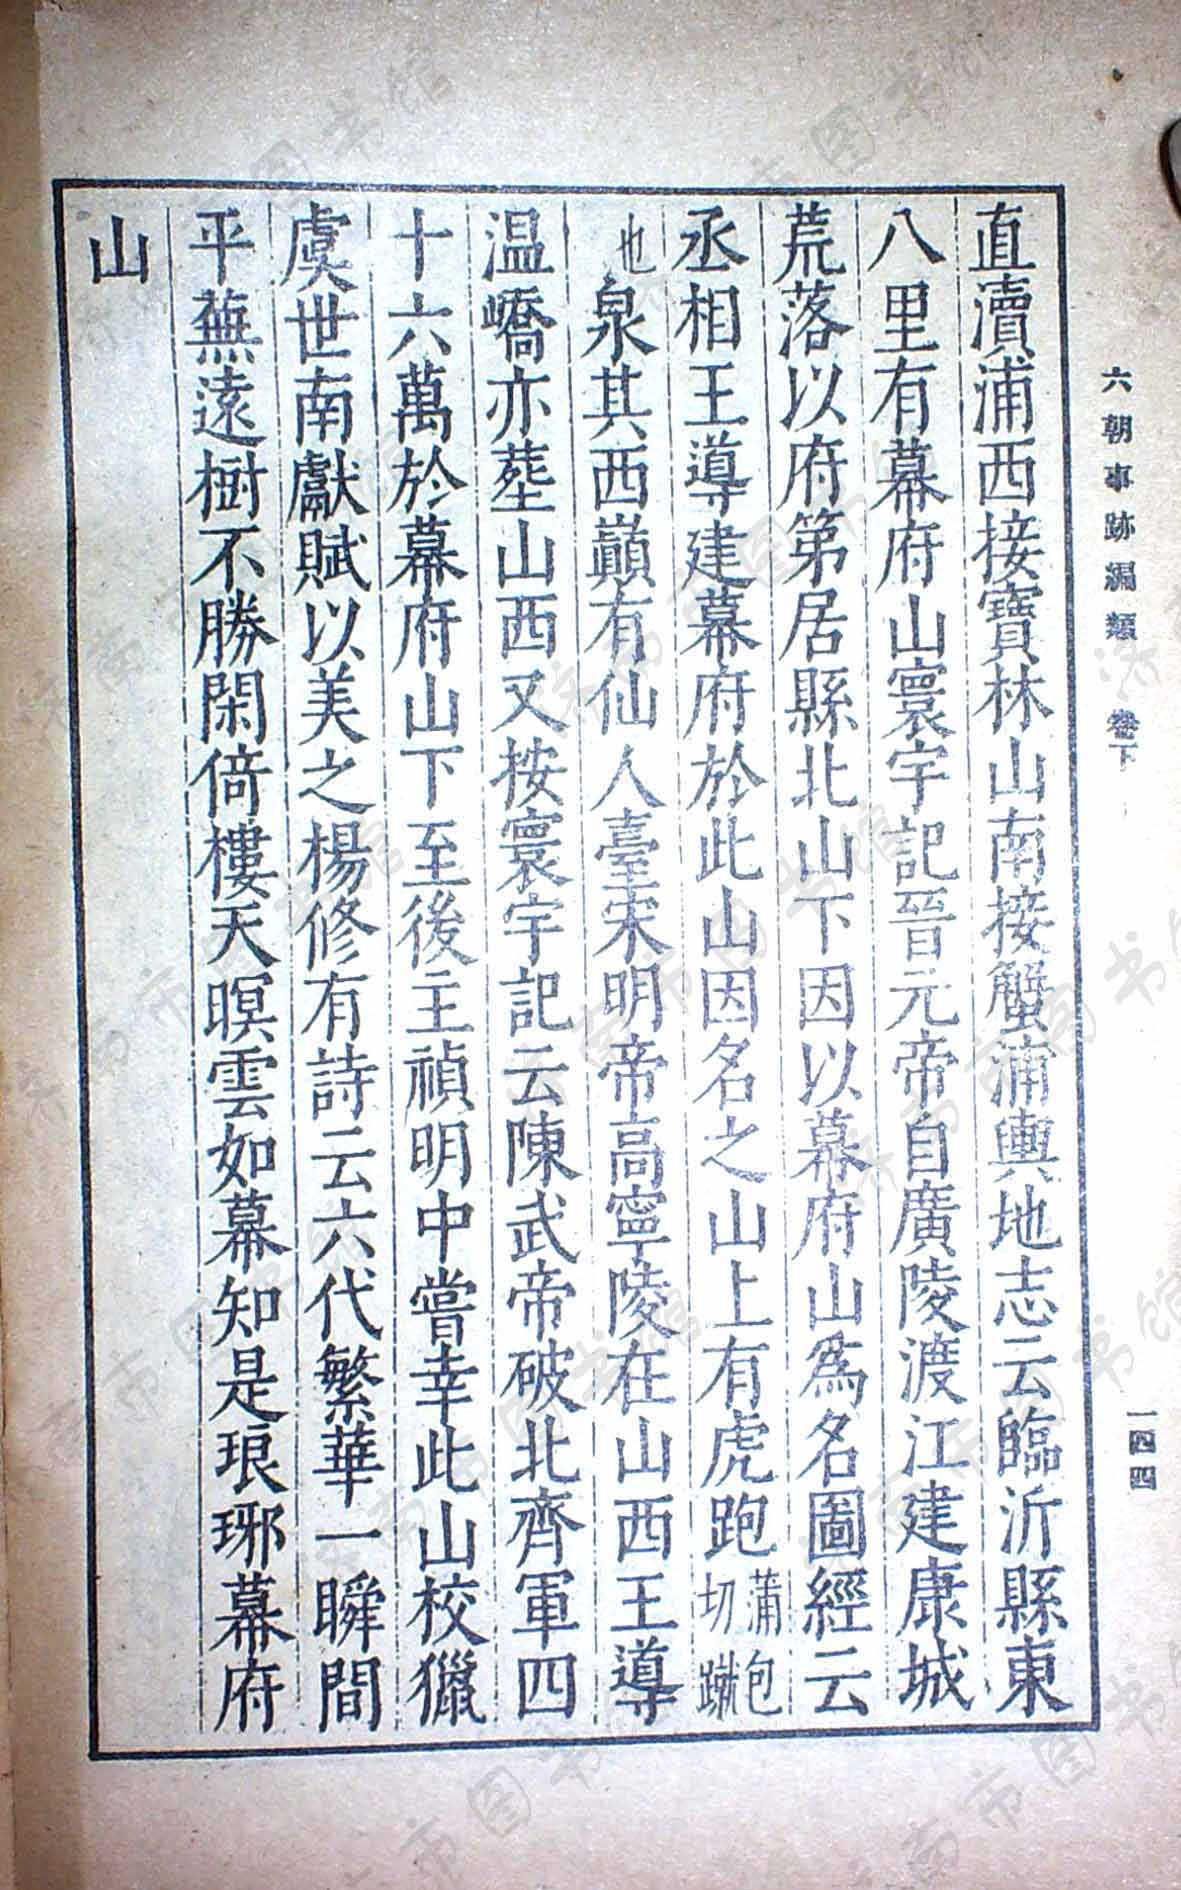 六朝事跡編類 卷下
一四四
直瀆浦西接寶林山南接蟹浦輿地志云臨沂縣東
八里有幕府山寰宇記晉元帝自廣陵渡江建康城
荒落以府第居縣北山下因以幕府山為名圖經云
丞相王導建幕府於此山因名之山上有虎跑蒲包切蹴
也泉其西巔有仙人臺宋明帝高寧陵在山西王導
温嶠亦塟山西又按寰宇記云陳武帝破北齊軍四
十六萬於幕府山下至後主禎明中嘗幸此山校獵
虞世南獻賦以美之楊修有詩云六代繁華一瞬間
平蕪遠樹不勝閑倚樓天暝雲如幕知是琅琊幕府
山